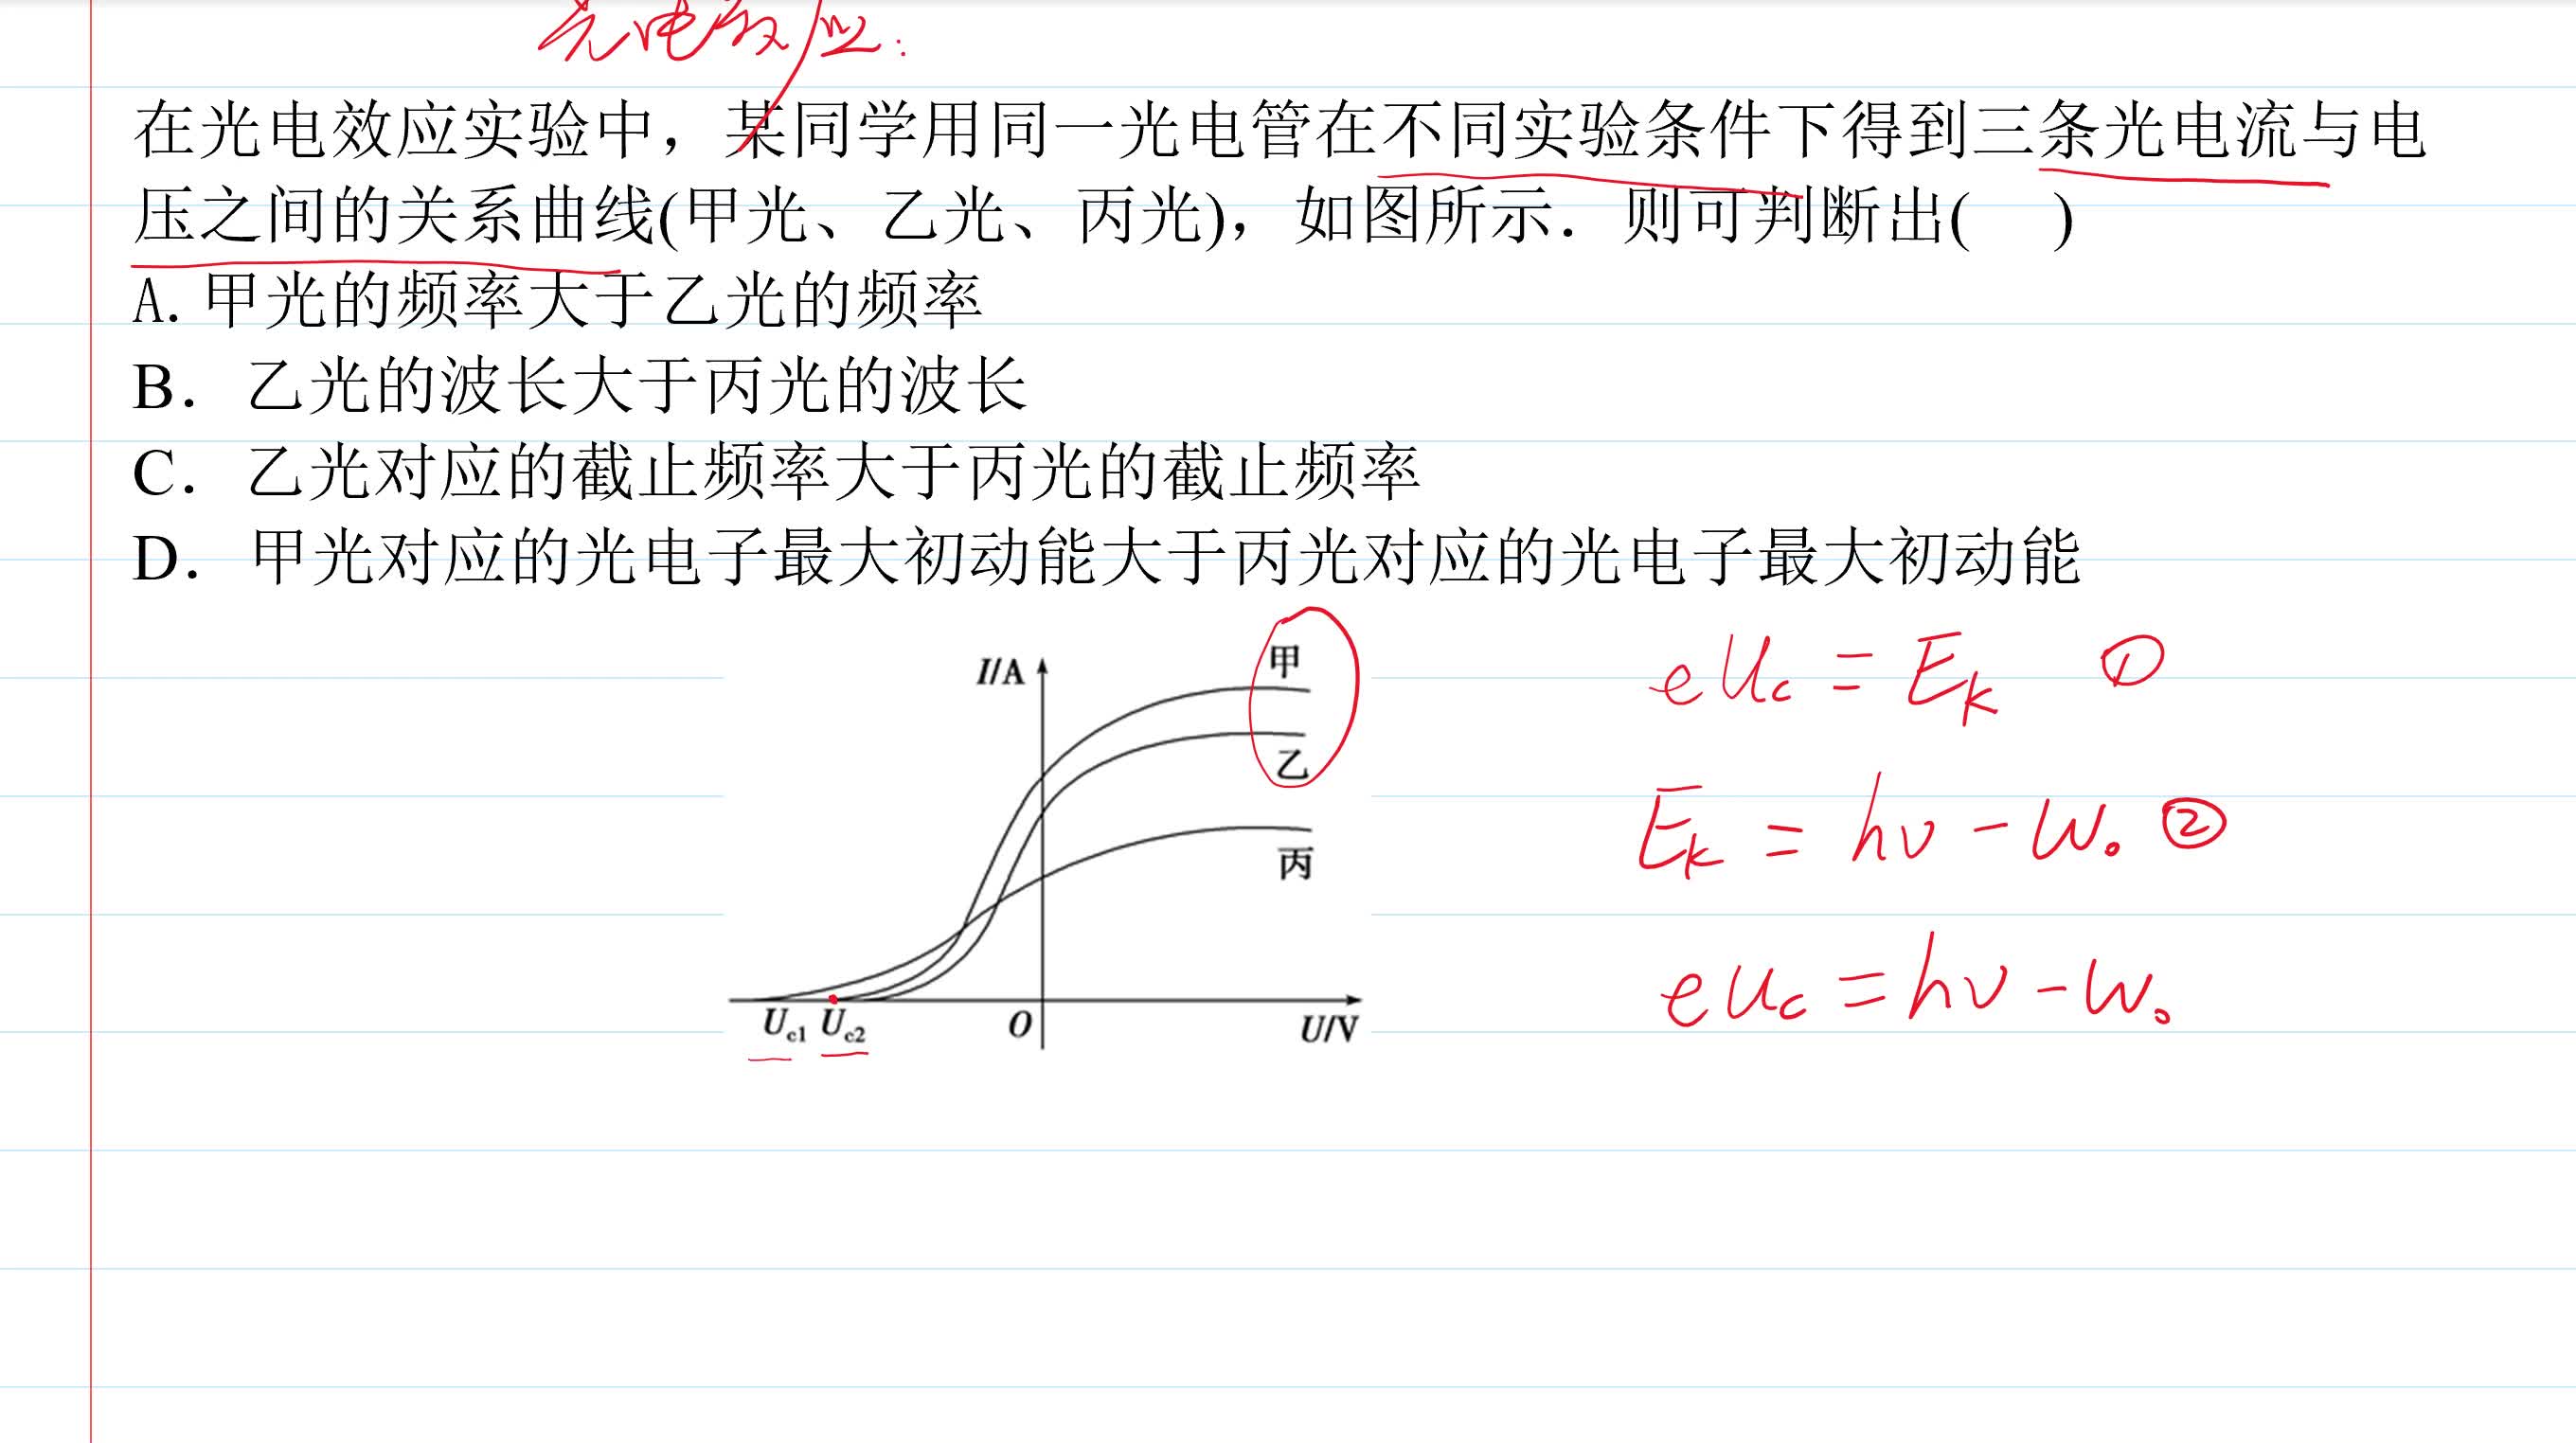 光电效应:
在光电效应实验中，某同学用同一光电管在不同实验条件下得到三条光电流与电
压之间的关系曲线(甲光、乙光、丙光)，如图所示．则可判断出(    )
A. 甲光的频率大于乙光的频率
B．乙光的波长大于丙光的波长
C．乙光对应的截止频率大于丙光的截止频率
D．甲光对应的光电子最大初动能大于丙光对应的光电子最大初动能
I/A
甲
乙
丙
Uc1 Uc2 O U/V
eUc = Ek ①
Ek = hν - W₀ ②
eUc = hν - W₀